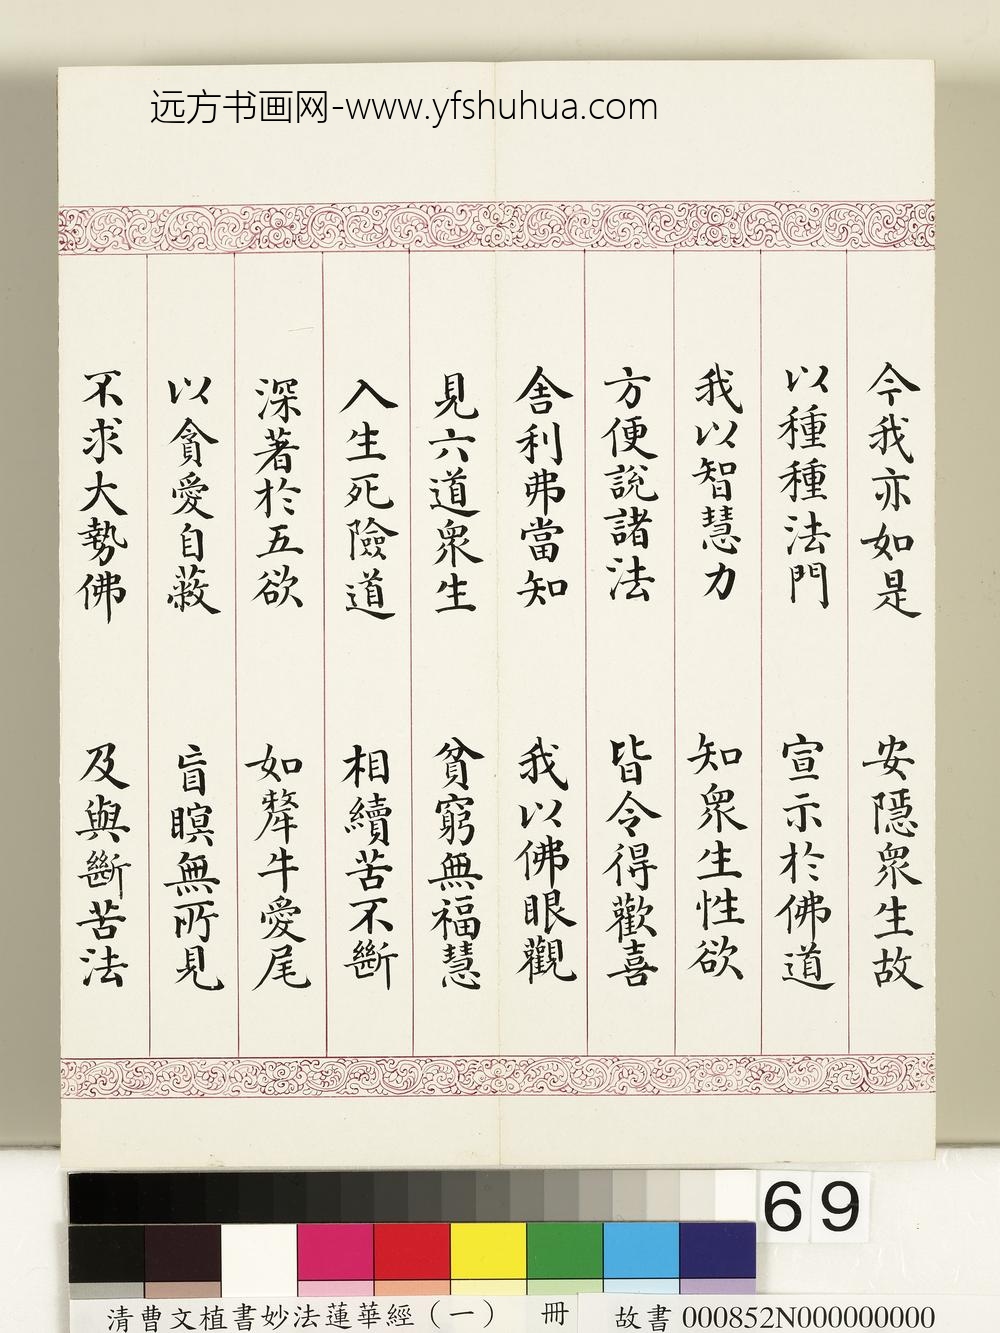 远方书画网-www.yfshuhua.com
今我亦如是 安隱衆生故
以種種法門 宣示於佛道
我以智慧力 知衆生性欲
方便說諸法 皆令得歡喜
舍利弗當知 我以佛眼觀
見六道衆生 貧窮無福慧
入生死險道 相續苦不斷
深著於五欲 如犛牛愛尾
以貪愛自蔽 盲瞑無所見
不求大勢佛 及與斷苦法
69
清曹文植書妙法蓮華經(一) 冊 故書 000852N000000000